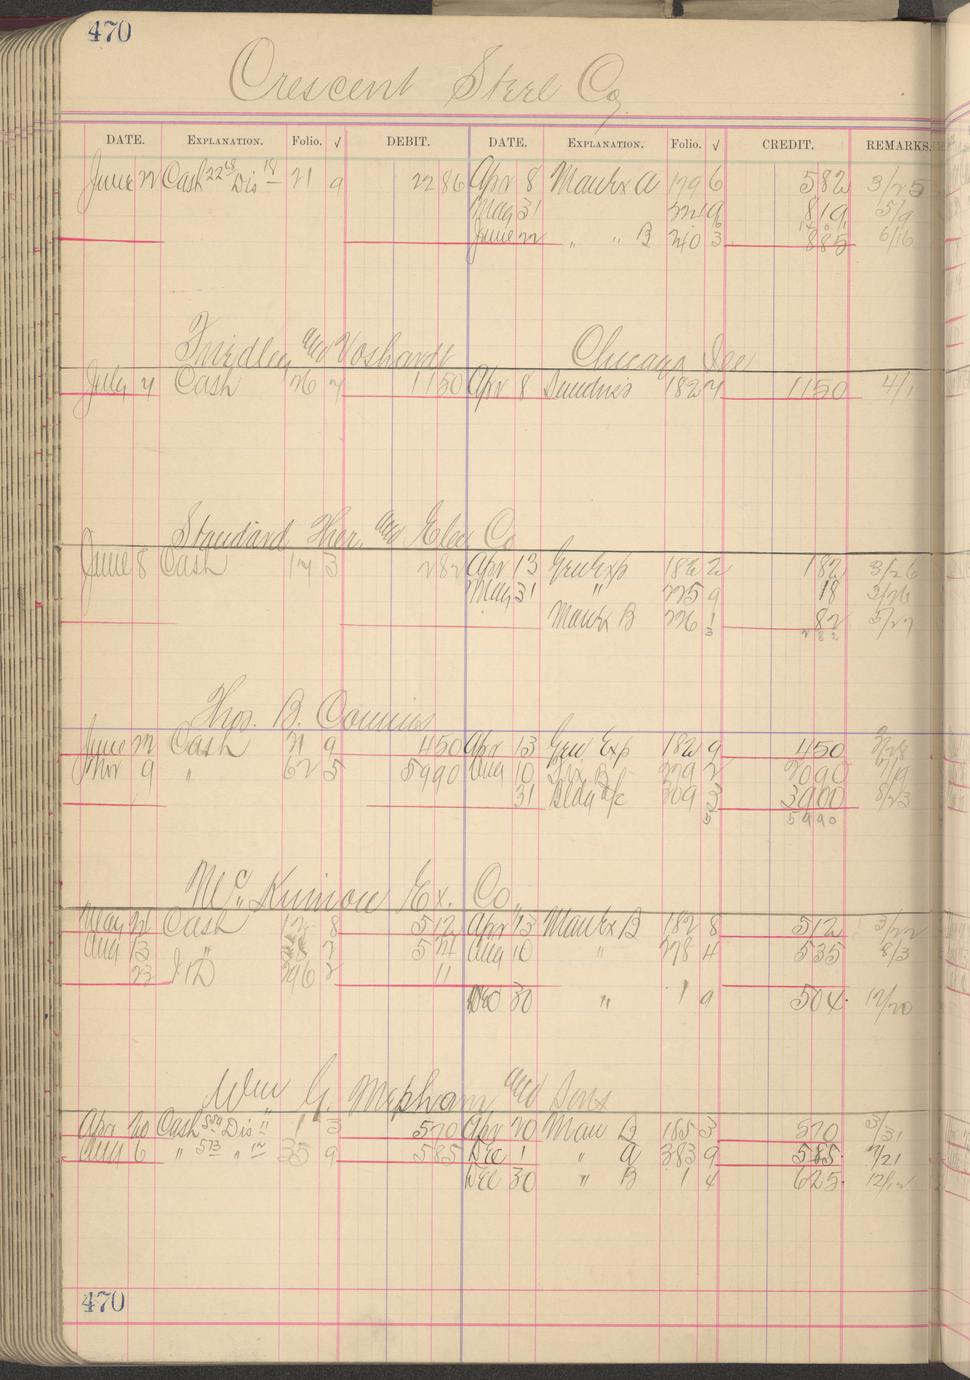 470
Crescent Steel Co.
DATE. EXPLANATION. Folio. √ DEBIT. DATE. EXPLANATION. Folio. √ CREDIT. REMARKS.
June 22 Cash 2268 Dis 18 21 9 2286 Apr 8 Manfx A 179 6 582 3/25
May 31 221 9 819 5/9
June 22 " " B 240 3 885 6/16
and Voshardt Chicago
July 7 Cash 26 7 1150 Apr 8 Sundries 182 7 1150 4/1
Standard Ther. and Elec Co
June 8 Cash 17 3 282 Apr 13 Gen Exp 182 2 182 3/26
May 31 " 225 9 18 3/26
Manfx B 226 1 82 5/27
3 282
Thos. B.
June 22 Cash 21 9 450 Apr 13 Gen Exp 182 9 450
Nov 9 " 62 5 5990 Aug 10 279 2 2090 7/19
31 Bldg a/c 309 3 3900 8/23
5 5990
Mc Ex. Co.
May 21 Cash 12 8 512 Apr 13 Manfx B 182 8 512 3/22
Aug 13 " 7 524 Aug 10 " 278 4 535 8/3
23 296 2 11
Dec 30 " 1 9 504 12/20
Wm G. Mepham and Sons
Apr 20 Cash 559 Dis 11 1 3 570 Apr 20 Man B 185 3 570 3/31
Aug 6 " 573 " 12 35 9 585 Dec 1 " A 383 9 585 7/21
Dec 30 " B 1 4 625 12/12
470